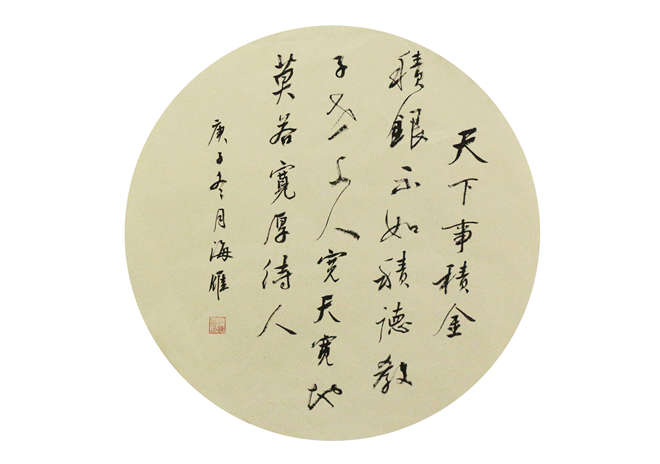 天下事積金
積銀不如積德教
子人寬天寬地
莫若寬厚待人
庚子冬月海